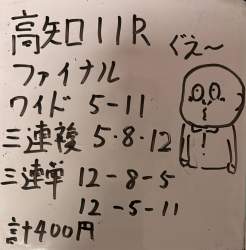 高知 11R
ぐえ～
ファイナル
ワイド 5-11
三連複 5・8・12
三連単 12-8-5
12-5-11
計400円